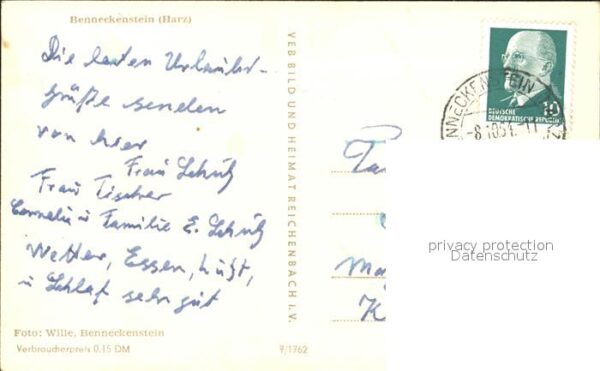 Benneckenstein (Harz)
Die besten Urlaubs-
grüße senden
von hier
Frau Schulz
Frau Tischer
Cornelia u Familie E. Schulz
Wetter, Essen, Luft,
u Schlaf sehr gut
Foto: Wille, Benneckenstein
Verbraucherpreis 0,15 DM
9/1762
VEB BILD UND HEIMAT REICHENBACH I. V.
10
DEUTSCHE
DEMOKRATISCHE REPUBLIK
BENNECKENSTEIN
privacy protection
Datenschutz